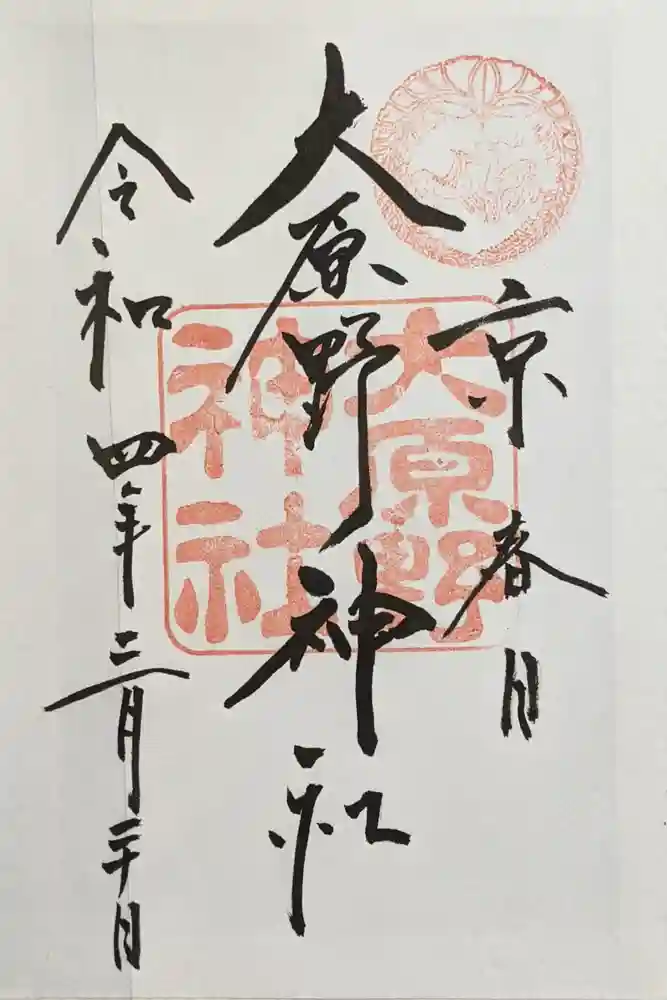 京春日
大原野神社
大原野
神社
令和四年三月二十日